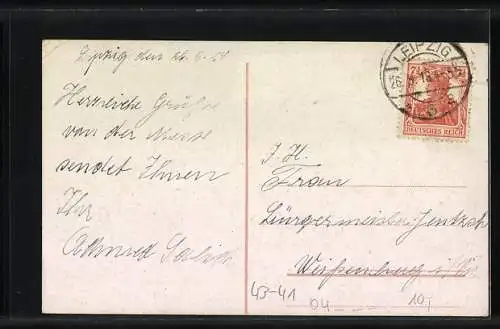 Leipzig den 26.
Herzliche Grüße
von der Messe
sendet Ihnen
Ihr
LEIPZIG
DEUTSCHES REICH
I. H.
Frau
Bürgermeister Jentzsch
Weißenburg i/
43-41
04
10,